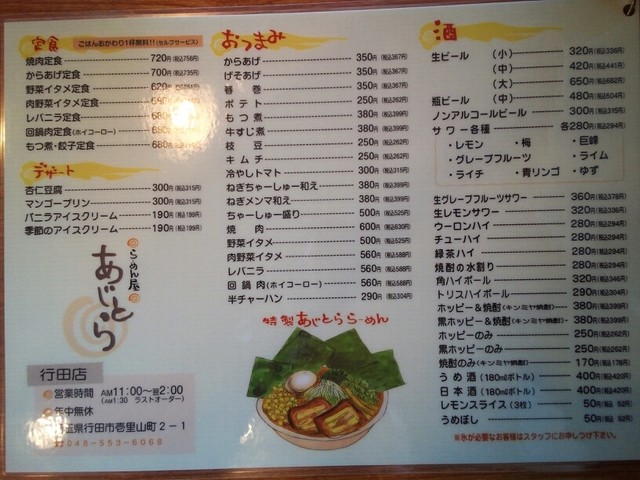 定食
ごはんおかわり1杯無料!!(セルフサービス)
焼肉定食 720円(税込756円)
からあげ定食 700円(税込735円)
野菜イタメ定食 620円
肉野菜イタメ定食
レバニラ定食 680
回鍋肉定食(ホイコーロー)
もつ煮・餃子定食 680
デザート
杏仁豆腐 300円(税込315円)
マンゴープリン 300円(税込315円)
バニラアイスクリーム 190円(税込199円)
季節のアイスクリーム 190円(税込199円)
らぁめん屋
あじとら
行田店
営業時間 AM11:00〜翌2:00
(AM1:30 ラストオーダー)
年中無休
埼玉県行田市壱里山町2-1
048-553-6068
おつまみ
からあげ 350円(税込367円)
げそあげ 350円(税込367円)
春巻 350円(税込367円)
ポテト 250円(税込262円)
もつ煮 380円(税込399円)
牛すじ煮 380円(税込399円)
枝豆 250円(税込262円)
キムチ 250円(税込262円)
冷やしトマト 300円(税込315円)
ねぎちゃーしゅー和え 380円(税込399円)
ねぎメンマ和え 380円(税込399円)
ちゃーしゅー盛り 500円(税込525円)
焼肉 600円(税込630円)
野菜イタメ 500円(税込525円)
肉野菜イタメ 560円(税込588円)
レバニラ 560円(税込588円)
回鍋肉(ホイコーロー) 560円(税込588円)
半チャーハン 290円(税込304円)
特製あじとららーめん
酒
生ビール (小) 320円(税込336円)
(中) 420円(税込441円)
(大) 650円(税込682円)
瓶ビール (中) 480円(税込504円)
ノンアルコールビール 300円(税込315円)
サワー各種 各280円(税込294円)
・レモン ・梅 ・巨峰
・グレープフルーツ ・ライム
・ライチ ・青リンゴ ・ゆず
生グレープフルーツサワー 360円(税込378円)
生レモンサワー 320円(税込336円)
ウーロンハイ 280円(税込294円)
チューハイ 280円(税込294円)
緑茶ハイ 280円(税込294円)
焼酎の水割り 280円(税込294円)
角ハイボール 320円(税込346円)
トリスハイボール 290円(税込304円)
ホッピー&焼酎(キンミヤ焼酎) 380円(税込399円)
黒ホッピー&焼酎(キンミヤ焼酎) 380円(税込399円)
ホッピーのみ 250円(税込262円)
黒ホッピーのみ 250円(税込262円)
焼酎のみ(キンミヤ焼酎) 170円(税込178円)
うめ酒(180mlボトル) 400円(税込420円)
日本酒(180mlボトル) 400円(税込420円)
レモンスライス(3枚) 50円(税込52円)
うめぼし 50円(税込52円)
※氷が必要なお客様はスタッフにお申しつけ下さい。